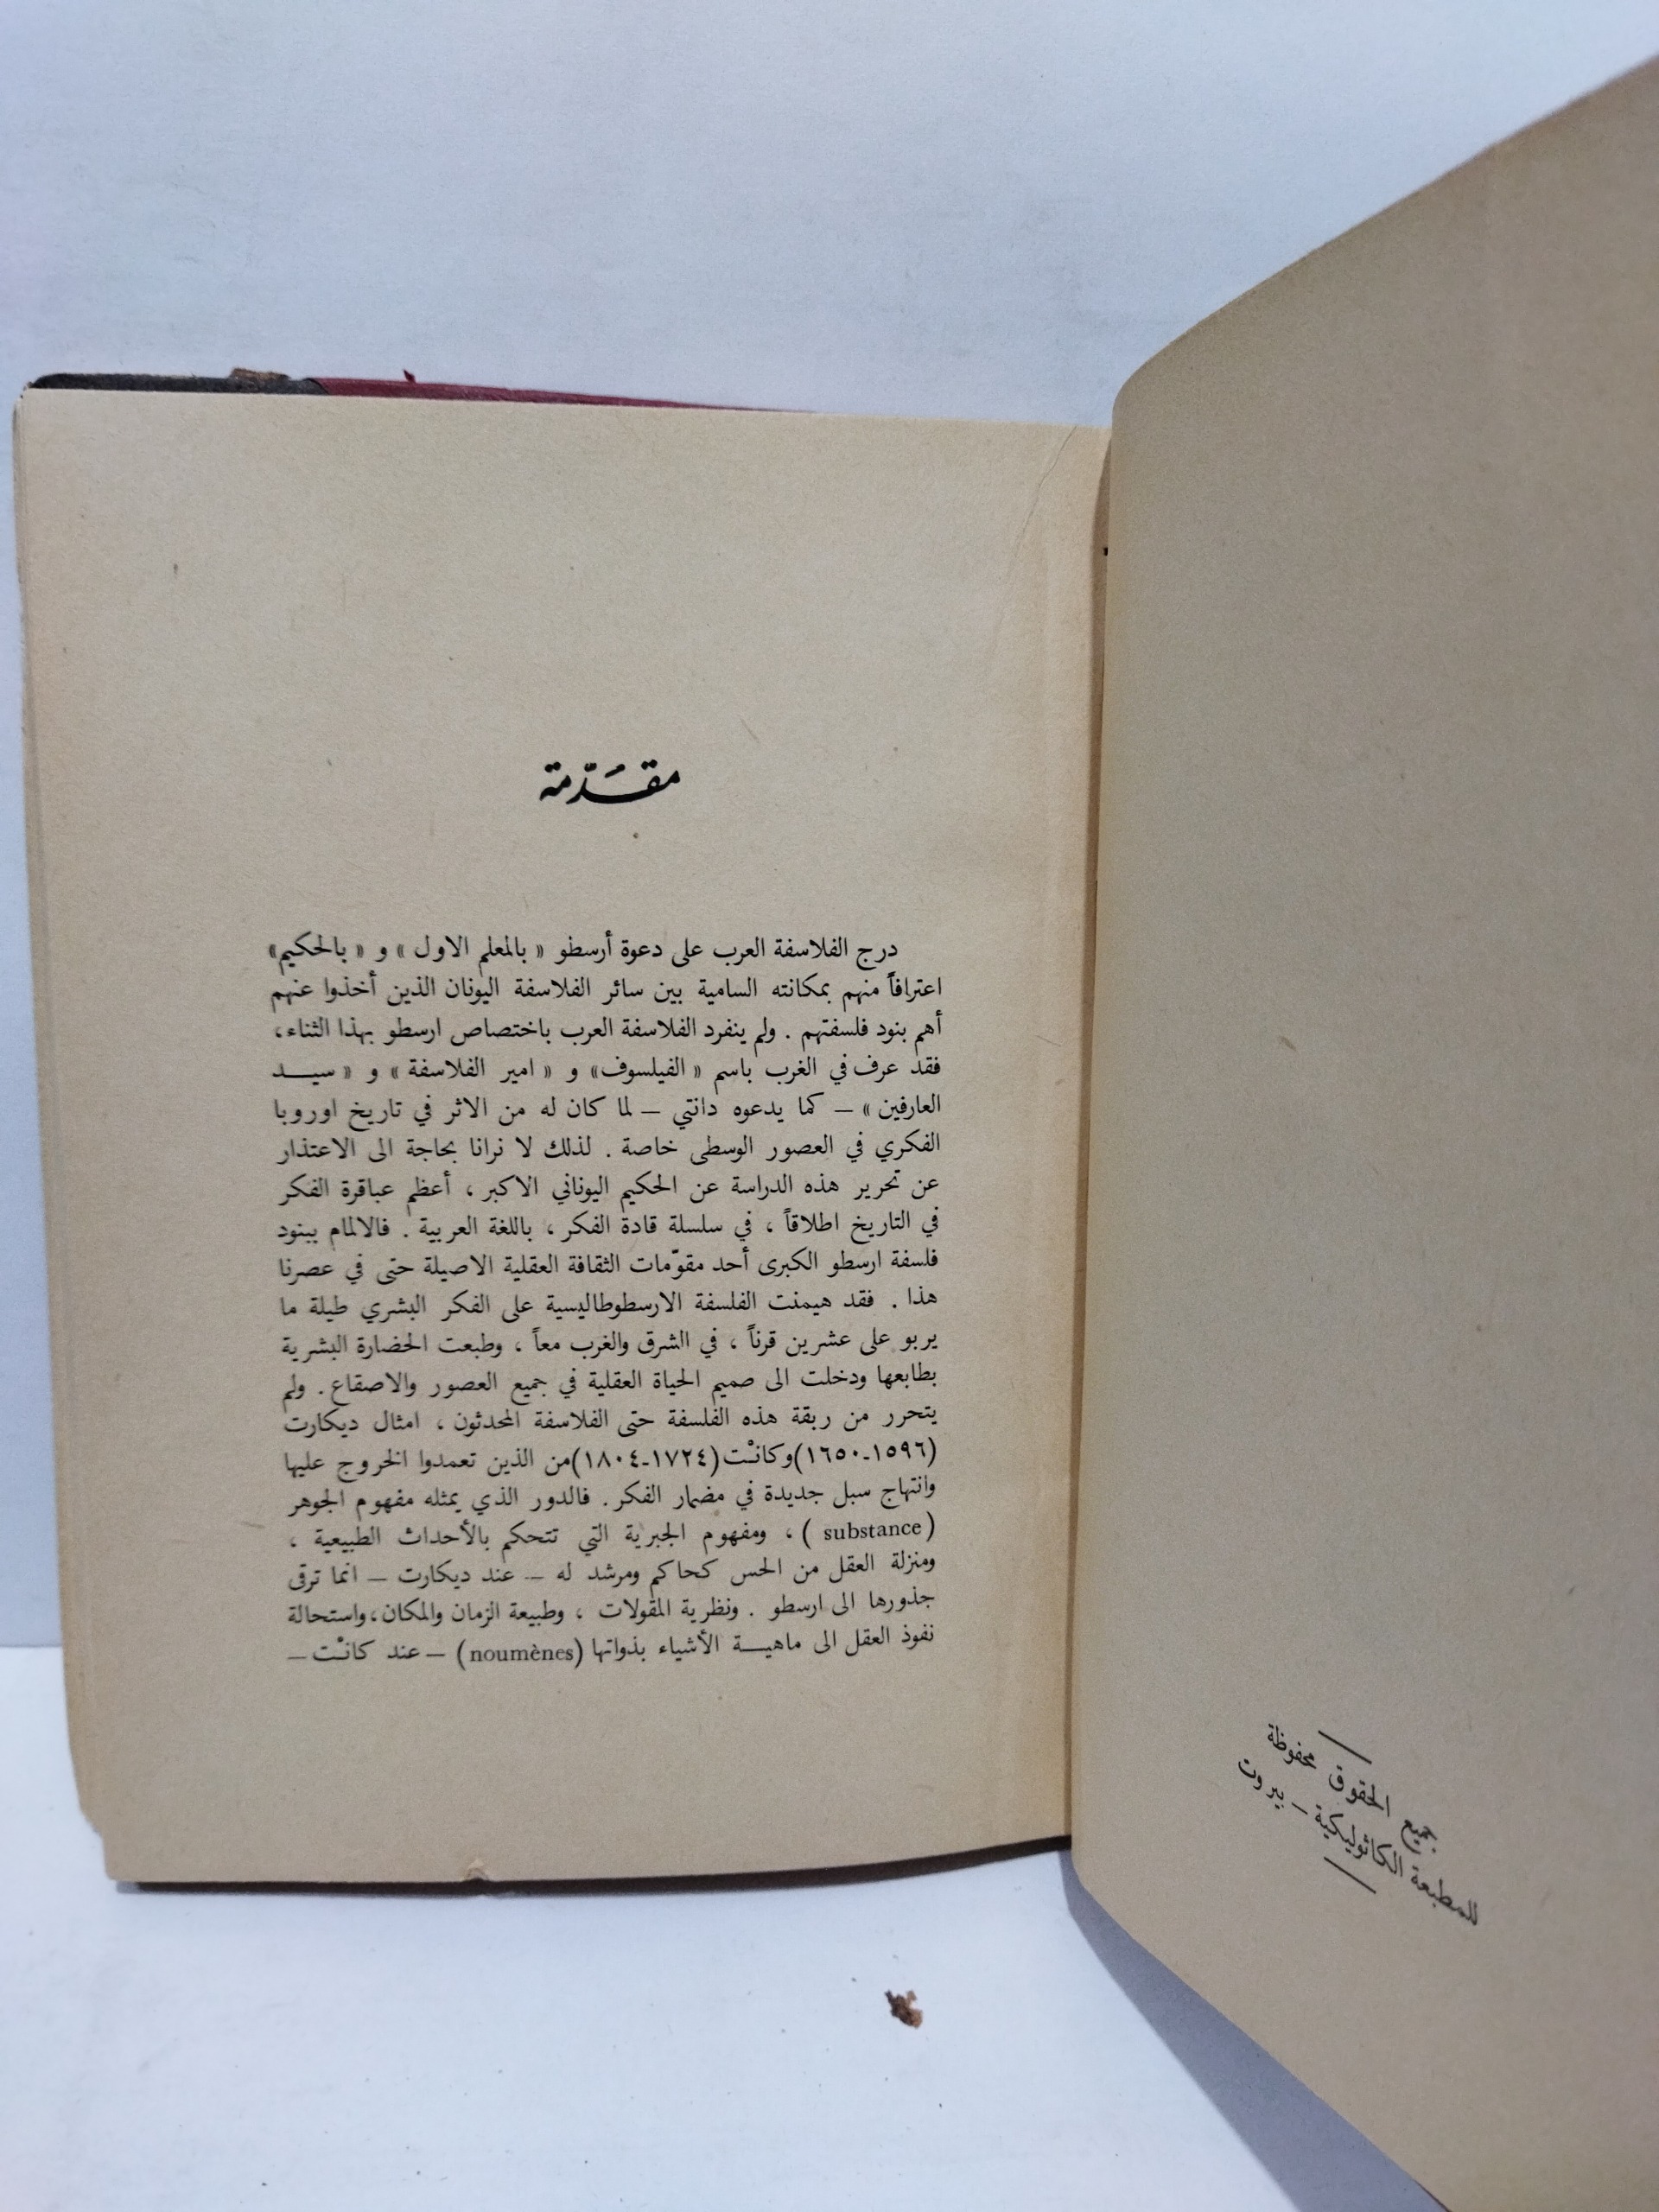 جميع الحقوق محفوظة
للمطبعة الكاثوليكية – بيروت
مقدّمة
درج الفلاسفة العرب على دعوة أرسطو « بالمعلم الاول » و « بالحكيم»
اعترافاً منهم بمكانته السامية بين سائر الفلاسفة اليونان الذين أخذوا عنهم
أهم بنود فلسفتهم . ولم ينفرد الفلاسفة العرب باختصاص ارسطو بهذا الثناء،
فقد عرف في الغرب باسم « الفيلسوف» و « امير الفلاسفة » و « سيـد
العارفين » – كما يدعوه دانتي – لما كان له من الاثر في تاريخ اوروبا
الفكري في العصور الوسطى خاصة . لذلك لا نرانا بحاجة الى الاعتذار
عن تحرير هذه الدراسة عن الحكيم اليوناني الاكبر ، أعظم عباقرة الفكر
في التاريخ اطلاقاً ، في سلسلة قادة الفكر ، باللغة العربية . فالالمام ببنود
فلسفة ارسطو الكبرى أحد مقوّمات الثقافة العقلية الاصيلة حتى في عصرنا
هذا . فقد هيمنت الفلسفة الارسطوطاليسية على الفكر البشري طيلة ما
يربو على عشرين قرناً ، في الشرق والغرب معاً ، وطبعت الحضارة البشرية
بطابعها ودخلت الى صميم الحياة العقلية في جميع العصور والاصقاع . ولم
يتحرر من ربقة هذه الفلسفة حتى الفلاسفة المحدثون ، امثال ديكارت
(١٥٩٦-١٦٥٠) وكانْت (١٧٢٤-١٨٠٤) من الذين تعمدوا الخروج عليها
وانتهاج سبل جديدة في مضمار الفكر . فالدور الذي يمثله مفهوم الجوهر
(substance ) ، ومفهوم الجبرية التي تتحكم بالأحداث الطبيعية ،
ومنزلة العقل من الحس كحاكم ومرشد له – عند ديكارت – انما ترقى
جذورها الى ارسطو . ونظرية المقولات ، وطبيعة الزمان والمكان، واستحالة
نفوذ العقل الى ماهيـة الأشياء بذواتها (noumènes) – عند كانْت –